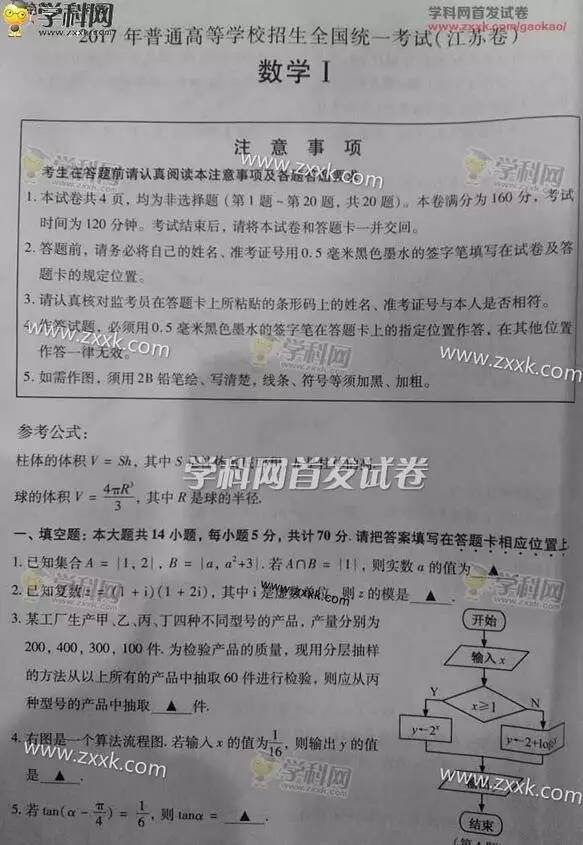 学科网
学科网首发试卷
www.zxxk.com/gaokao/
2017 年普通高等学校招生全国统一考试(江苏卷)
数学 I
注 意 事 项
www.zxxk.com
学科网
考生在答题前请认真阅读本注意事项及各题答题要求
1. 本试卷共 4 页，均为非选择题 (第 1 题 ~ 第 20 题, 共 20 题)。本卷满分为 160 分，考试
时间为 120 分钟。考试结束后，请将本试卷和答题卡一并交回。
2. 答题前，请务必将自己的姓名、准考证号用 0.5 毫米黑色墨水的签字笔填写在试卷及答
题卡的规定位置。
3. 请认真核对监考员在答题卡上所粘贴的条形码上的姓名、准考证号与本人是否相符。
4. 作答试题，必须用 0.5 毫米黑色墨水的签字笔在答题卡上的指定位置作答，在其他位置
作答一律无效。
www.zxxk.com
学科网
www.zxxk.com
5. 如需作图，须用 2B 铅笔绘、写清楚，线条、符号等须加黑、加粗。
参考公式:
柱体的体积 V = Sh, 其中 S
学科网首发试卷
球的体积 V = 4πR³/3, 其中 R 是球的半径.
一、填空题: 本大题共 14 小题, 每小题 5 分, 共计 70 分. 请把答案填写在答题卡相应位置上
1. 已知集合 A = {1, 2}, B = {a, a²+3}. 若 A∩B = {1}, 则实数 a 的值为 ▲
学科网
www.zxxk.com
2. 已知复数 z = (1 + i)(1 + 2i), 其中 i 是虚数单位, 则 z 的模是 ▲ .
3. 某工厂生产甲、乙、丙、丁四种不同型号的产品，产量分别为
200, 400, 300, 100 件. 为检验产品的质量，现用分层抽样
的方法从以上所有的产品中抽取 60 件进行检验，则应从丙
种型号的产品中抽取 ▲ 件.
4. 右图是一个算法流程图. 若输入 x 的值为 1/16, 则输出 y 的值
是 ▲ .
www.zxxk.com
学科网
5. 若 tan(α − π/4) = 1/6, 则 tanα = ▲ .
开始
输入 x
Y
x≥1
N
y←2ˣ
y←2+log₂x
www.zxxk.com
结束
学科网
(第 4 题)